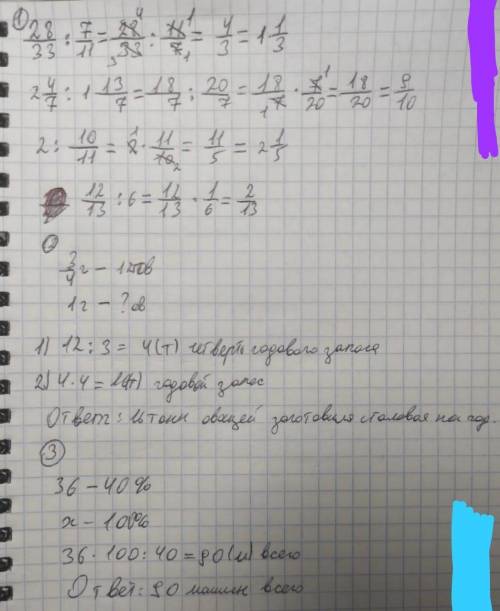 ①
28/33 : 7/11 = 28/33 · 11/7 = 4/3 = 1 1/3
2 4/7 : 1 13/7 = 18/7 : 20/7 = 18/7 · 7/20 = 18/20 = 9/10
2 : 10/11 = 2 · 11/10 = 11/5 = 2 1/5
12/13 : 6 = 12/13 · 1/6 = 2/13
3/4 г – 12т ов
1г – ? ов
1) 12 : 3 = 4(т) четверть годового запаса
2) 4 · 4 = 16(т) годовой запас
Ответ: 16 тонн овощей заготовила столовая на год.
③
36 – 40%
x – 100%
36 · 100 : 40 = 90 (м) всего
Ответ: 90 машин всего